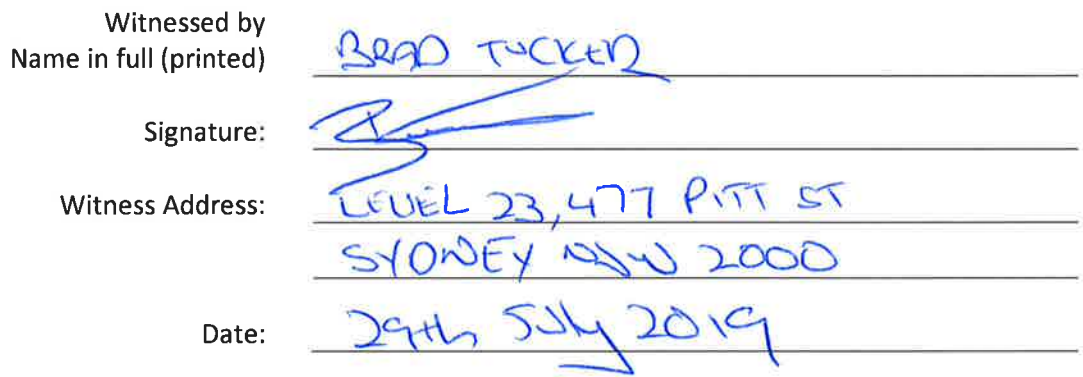 Witnessed by
Name in full (printed) BRAD TUCKER
Signature:
Witness Address: LEVEL 23, 477 PITT ST
SYDNEY NSW 2000
Date: 29th July 2019